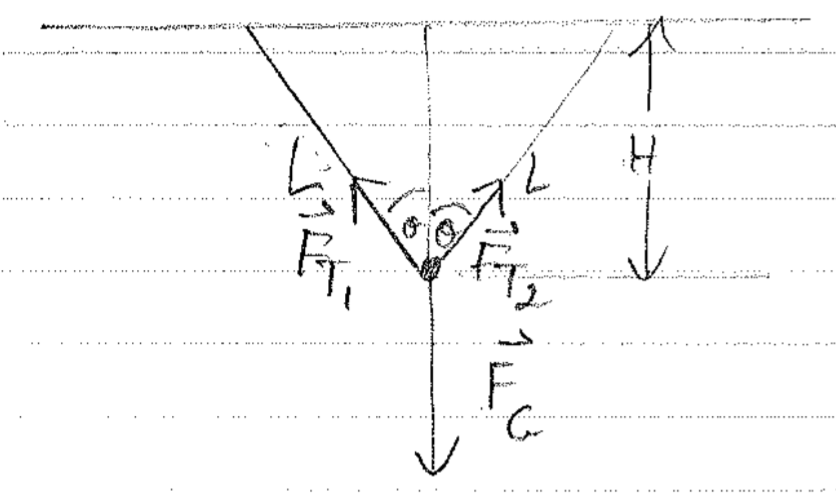 H
L L
θ θ
F⃗T₁ F⃗T₂
F⃗G